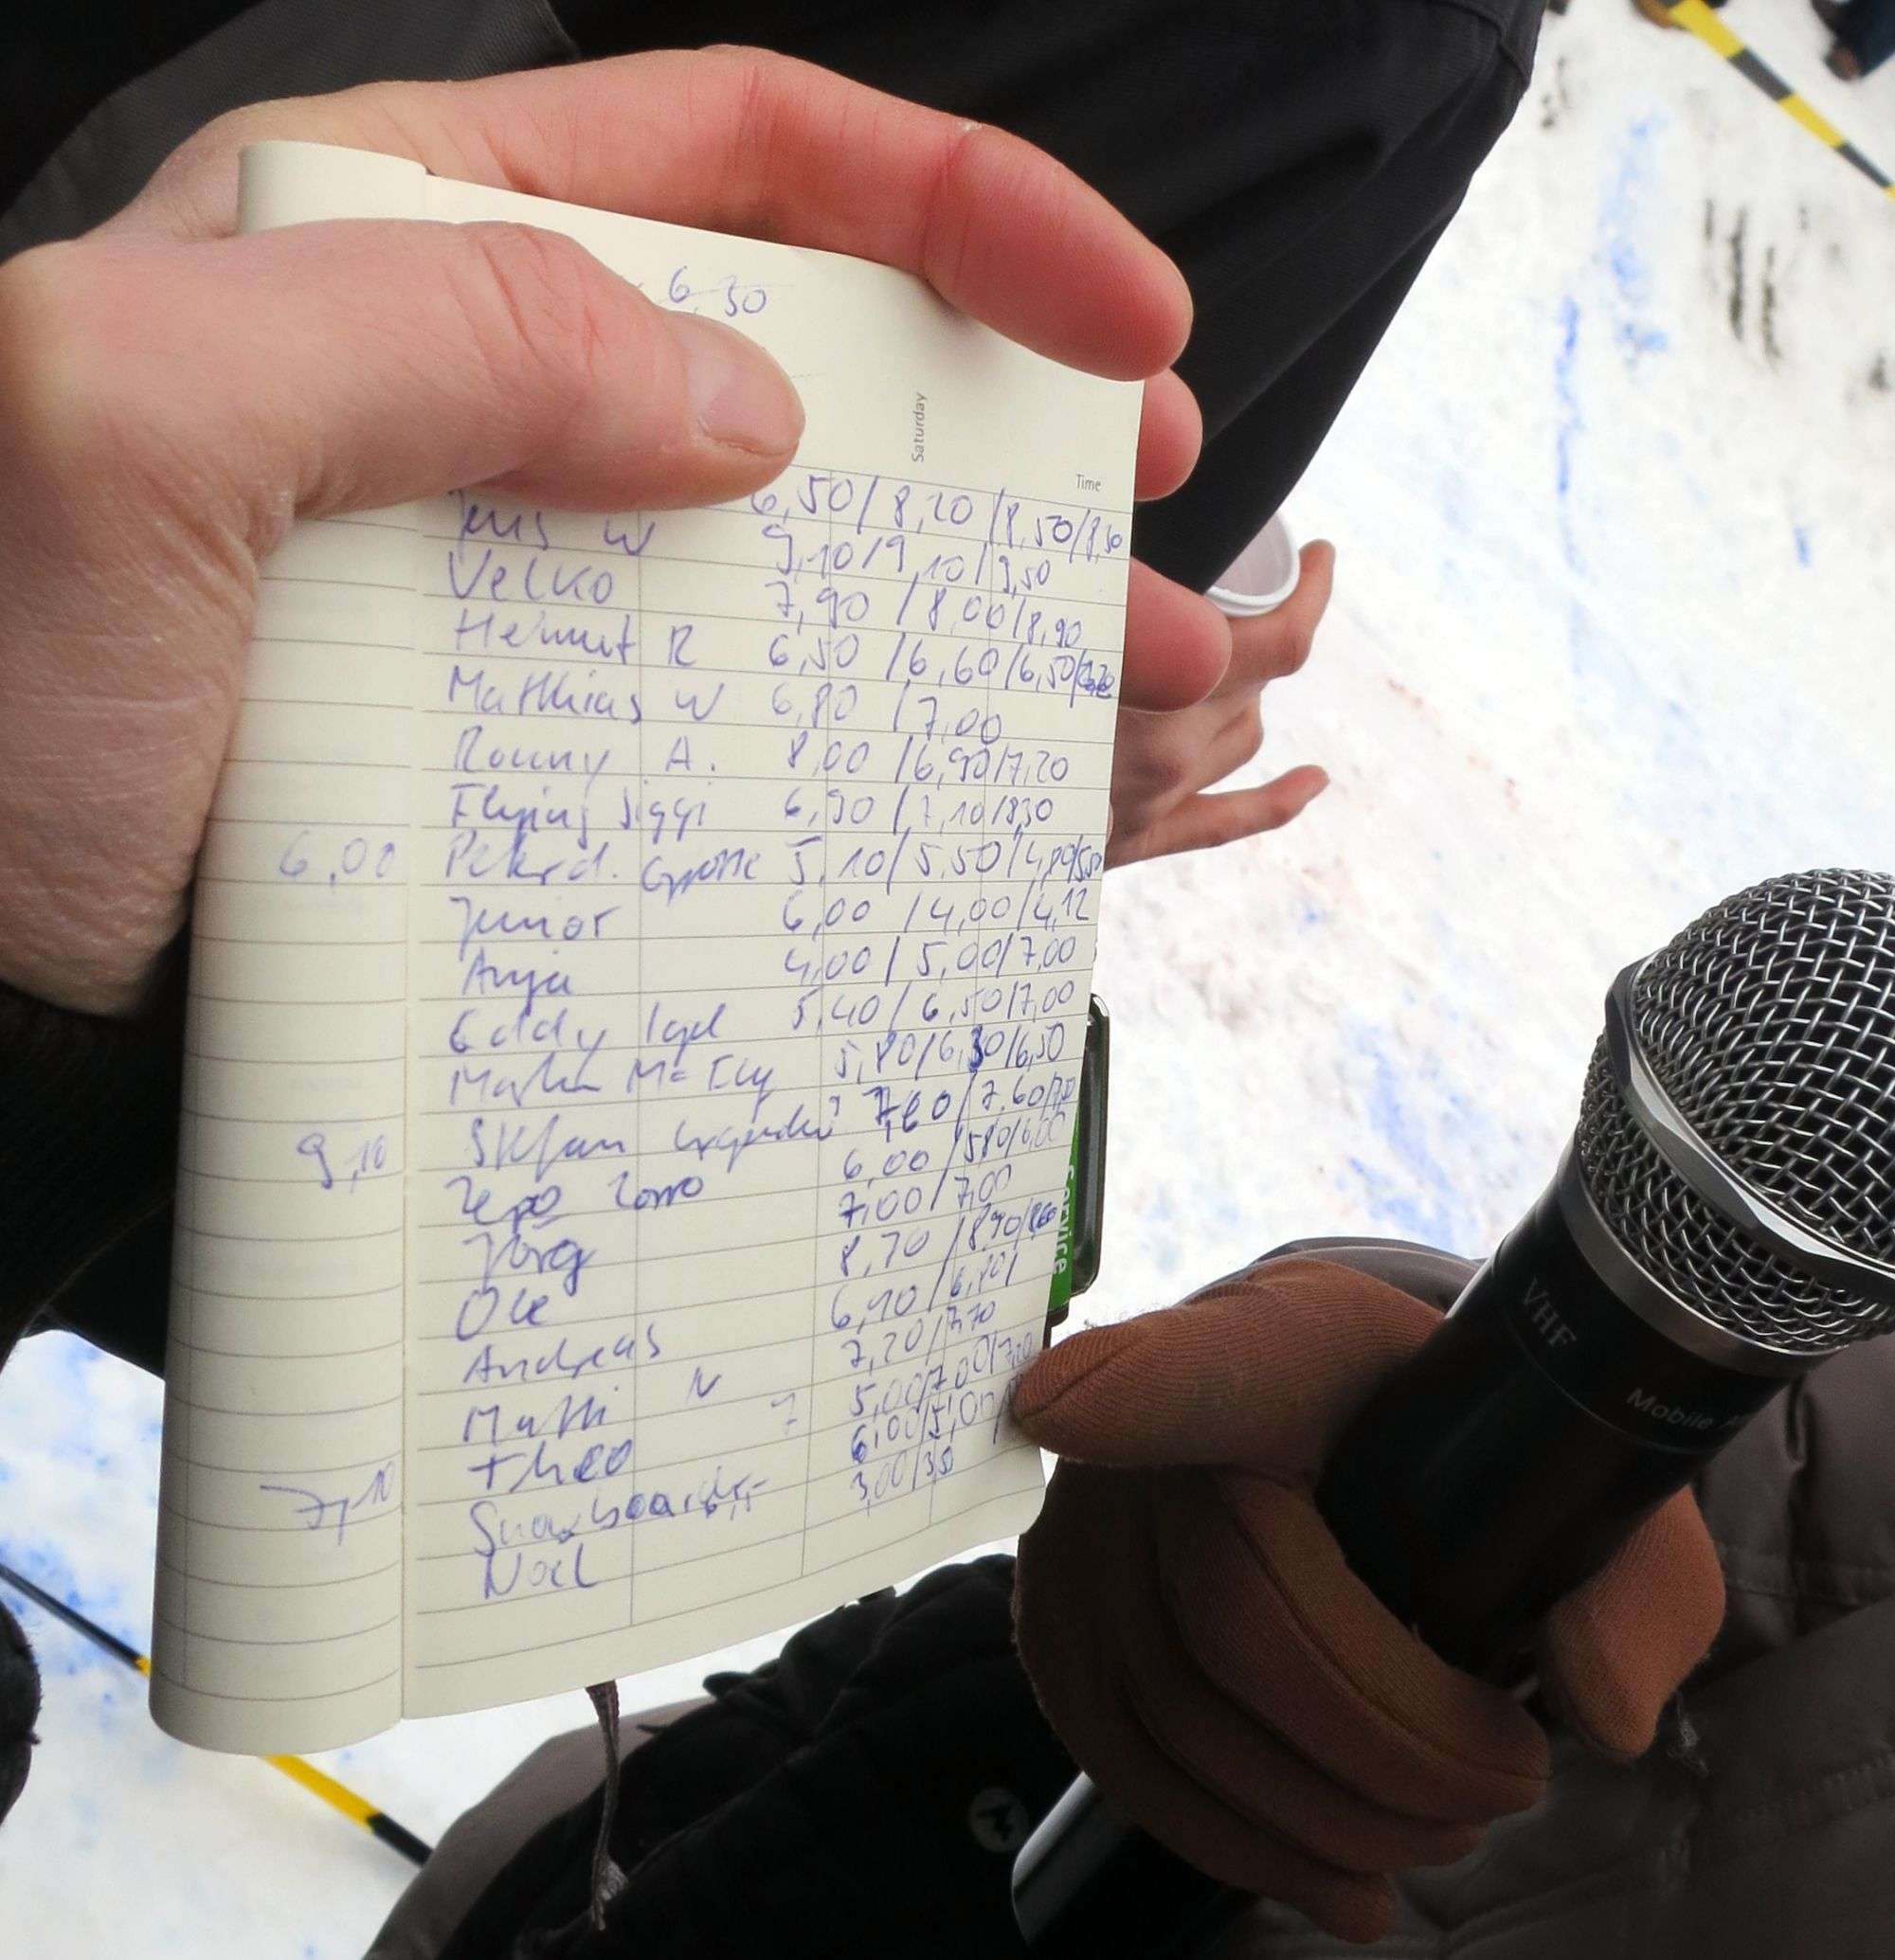 6,30
Saturday
Time
6,50/8,20/8,50/8,50
Jens W 9,10/9,10/9,50
Velko 7,90/8,00/8,90
Helmut R 6,50/6,60/6,50/
Matthias W 6,80/7,00
Ronny A. 8,00/6,90/7,20
Flying Siggi 6,90/7,10/8,30
6,00 Peter d. Große 5,10/5,50/4,80/5,50
Junior 6,00/4,00/4,12
Anja 4,00/5,00/7,00
Eddy Igel 5,40/6,50/7,00
Martin Mc Fly 5,80/6,30/6,50
9,10 Stefan 7,60/7,60/
Zorro 6,00/5,80/6,00
Jörg 7,00/7,00
Ole 8,70/8,90/8,60
Andreas 6,90/6,80/
Matthi N 7,20/7,70
Theo 7 5,00/7,00/7,00
7,10 Snowboarder 6,00/5,00/
Noel 3,00/3,50
Service
VHF
Mobile